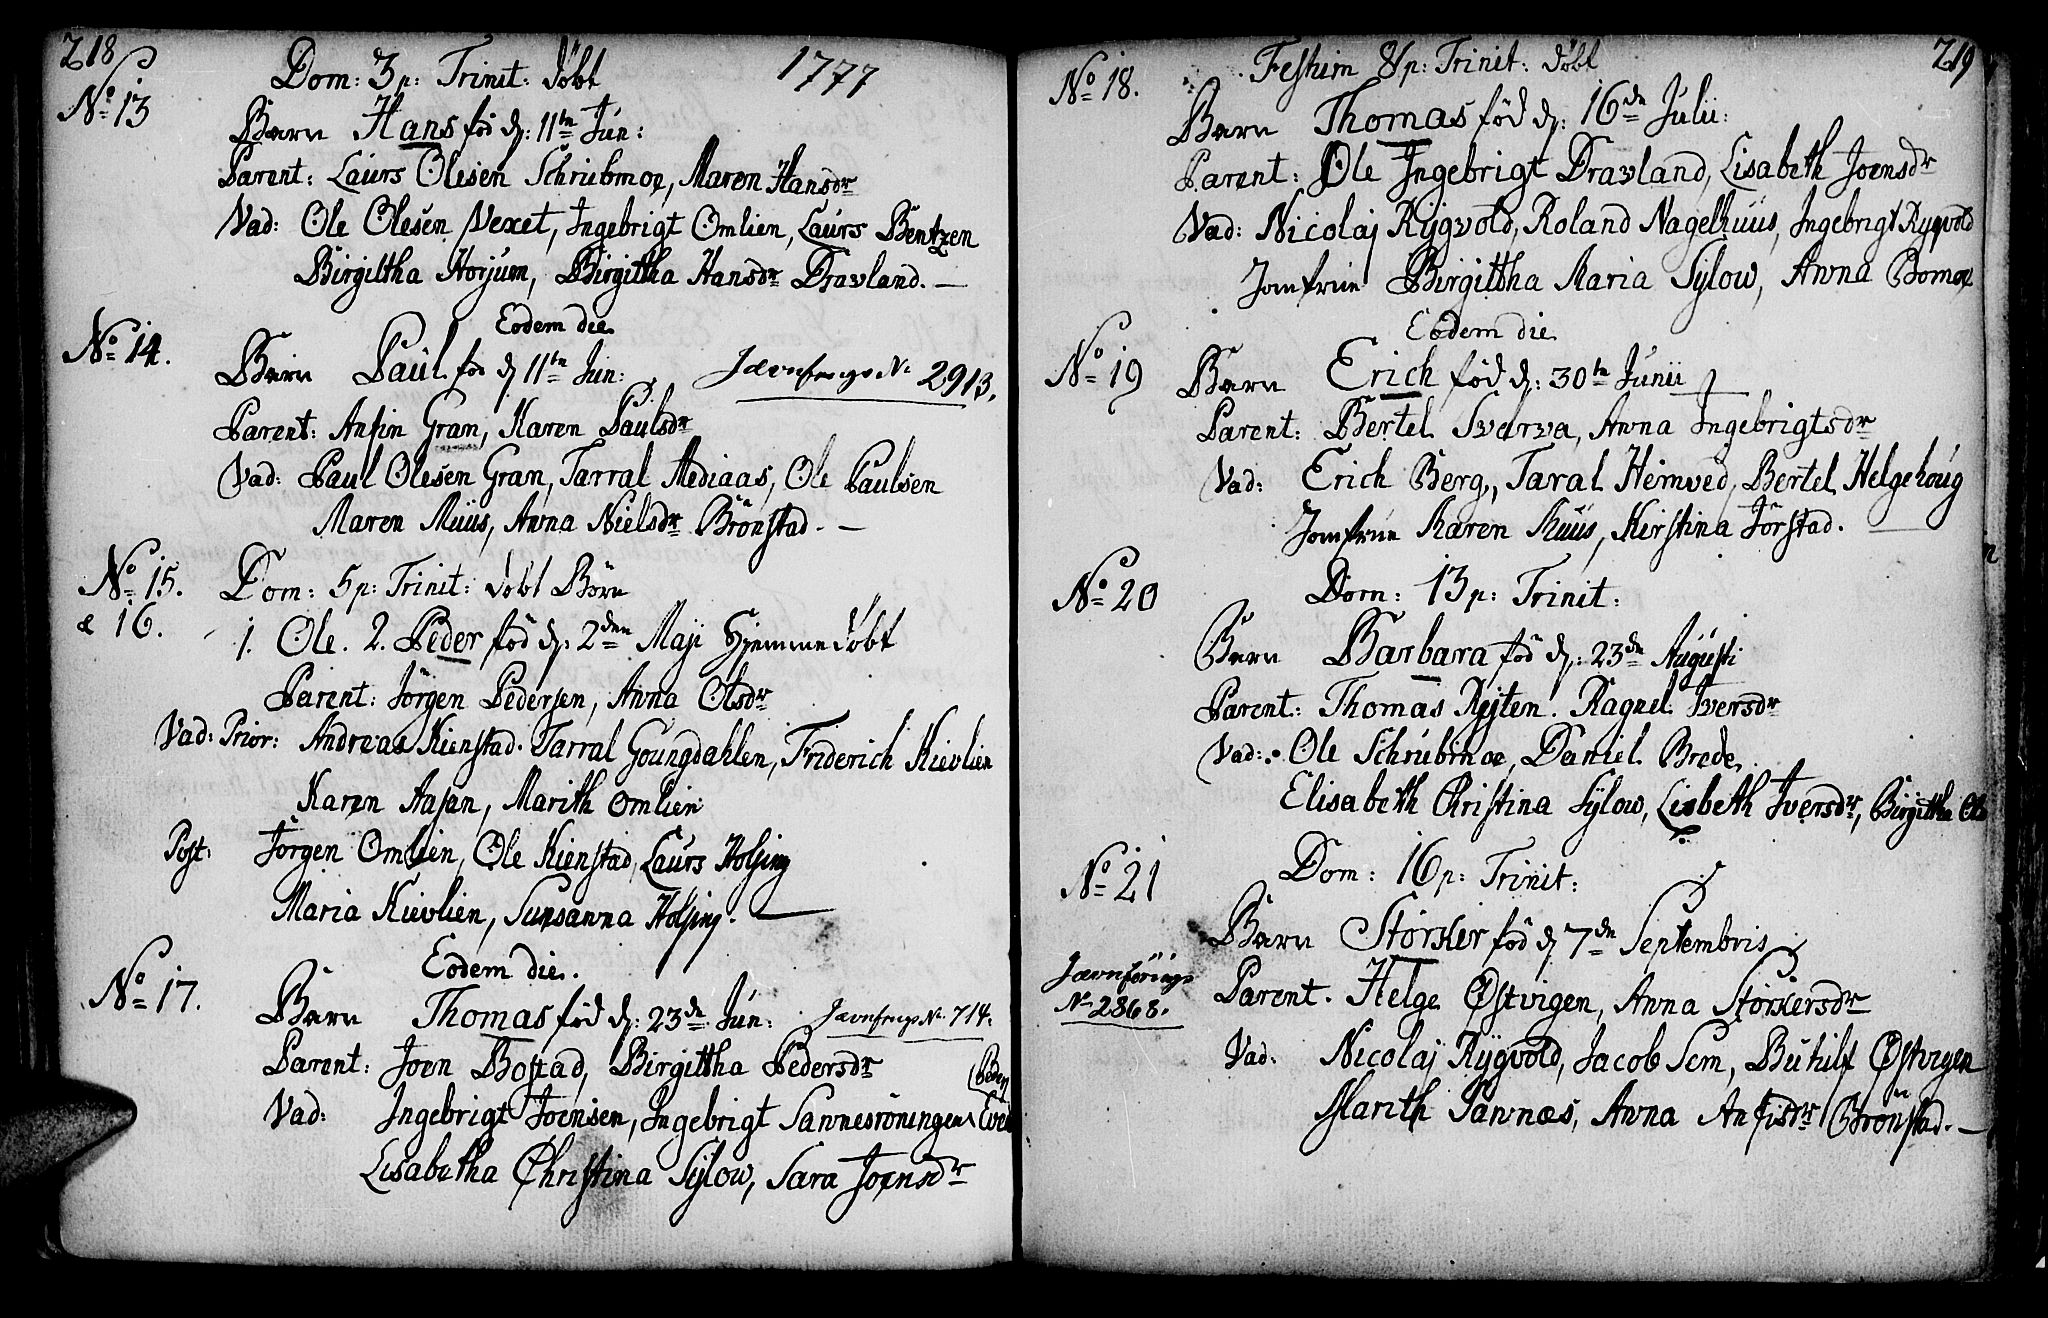 218
Dom: 3 p: Trinit: döbt 1777
No 13
Barn Hans föd d: 11te Jun:
Parent: Laurs Olesen Schrubmoe, Maren Hansdr
Vad: Ole Olesen Vexet, Ingebrigt Omlien, Laurs Bentzen
Birgittha Horjum, Birgittha Hansdr Dravland. —
Eodem die.
No 14.
Barn Paul fö d 11te Jun: Jævnførgs No 2913.
Parent: Anfin Gran, Karen Paulsdr
Vad: Paul Olesen Gran, Tarral Mediaas, Ole Paulsen
Maren Muus, Anna Nielsdr Brönstad. —
No 15. Dom: 5 p: Trinit: döbt Börn
& 16. 1. Ole. 2. Peder föd d: 2den Maji Hjemmedöbt
Parent: Jörgen Pedersen, Anna Olsdr
Vad: Prior: Andreas Kienstad. Tarral Goungdahlen, Friderich Kievlien
Karen Aasan, Marith Omlien
Post: Jörgen Omlien, Ole Kienstad, Laurs Holsing
Maria Kievlien, Sunsanna Holsing. —
Eodem die.
No 17.
Barn Thomas föd d: 23de Jun: Jævnførgs No 714.
Parent: Joen Bostad, Birgittha Pedersdr
Vad: Ingebrigt Joensen, Ingebrigt Sannesröningen
Lisabetha Christina Sylow, Sara Joensdr
219
No 18. Festum 8 p: Trinit: döbt
Barn Thomas föd d: 16de Julii:
Parent: Ole Ingebrigt Dravland, Lisabeth Joensdr
Vad: Nicolaj Rygvold, Roland Nagelhuus, Ingebrigt Rygvold
Jomfrue Birgittha Maria Sylow, Anna Bomoe
Eodem die
No 19
Barn Erich föd d: 30te Junii
Parent: Bertel Svedrva, Anna Ingebrigtsdr
Vad: Erich Berg, Taral Hemved, Bertel Helgehoug
Jomfrue Maren Muus, Kirstina Jörstad.
No 20 Dom: 13 p: Trinit:
Barn Barbara föd d: 23de Augusti
Parent: Thomas Rejten. Ragnel Iversdr
Vad: Ole Schrubmoe, Daniel Brede
Elisabeth Christina Sylow, Lisbeth Iversdr, Birgitha Ols
No 21 Dom: 16 p: Trinit:
Barn Störker föd d 7de Septembris
Jævnførings
No 2868.
Parent. Helge Østvigen, Anna Störkersdr
Vad: Nicolaj Rygvold, Jacob Sem, Buhilf Østvigen
Marith Sannæs, Anna Anfisdr Brönstad. —